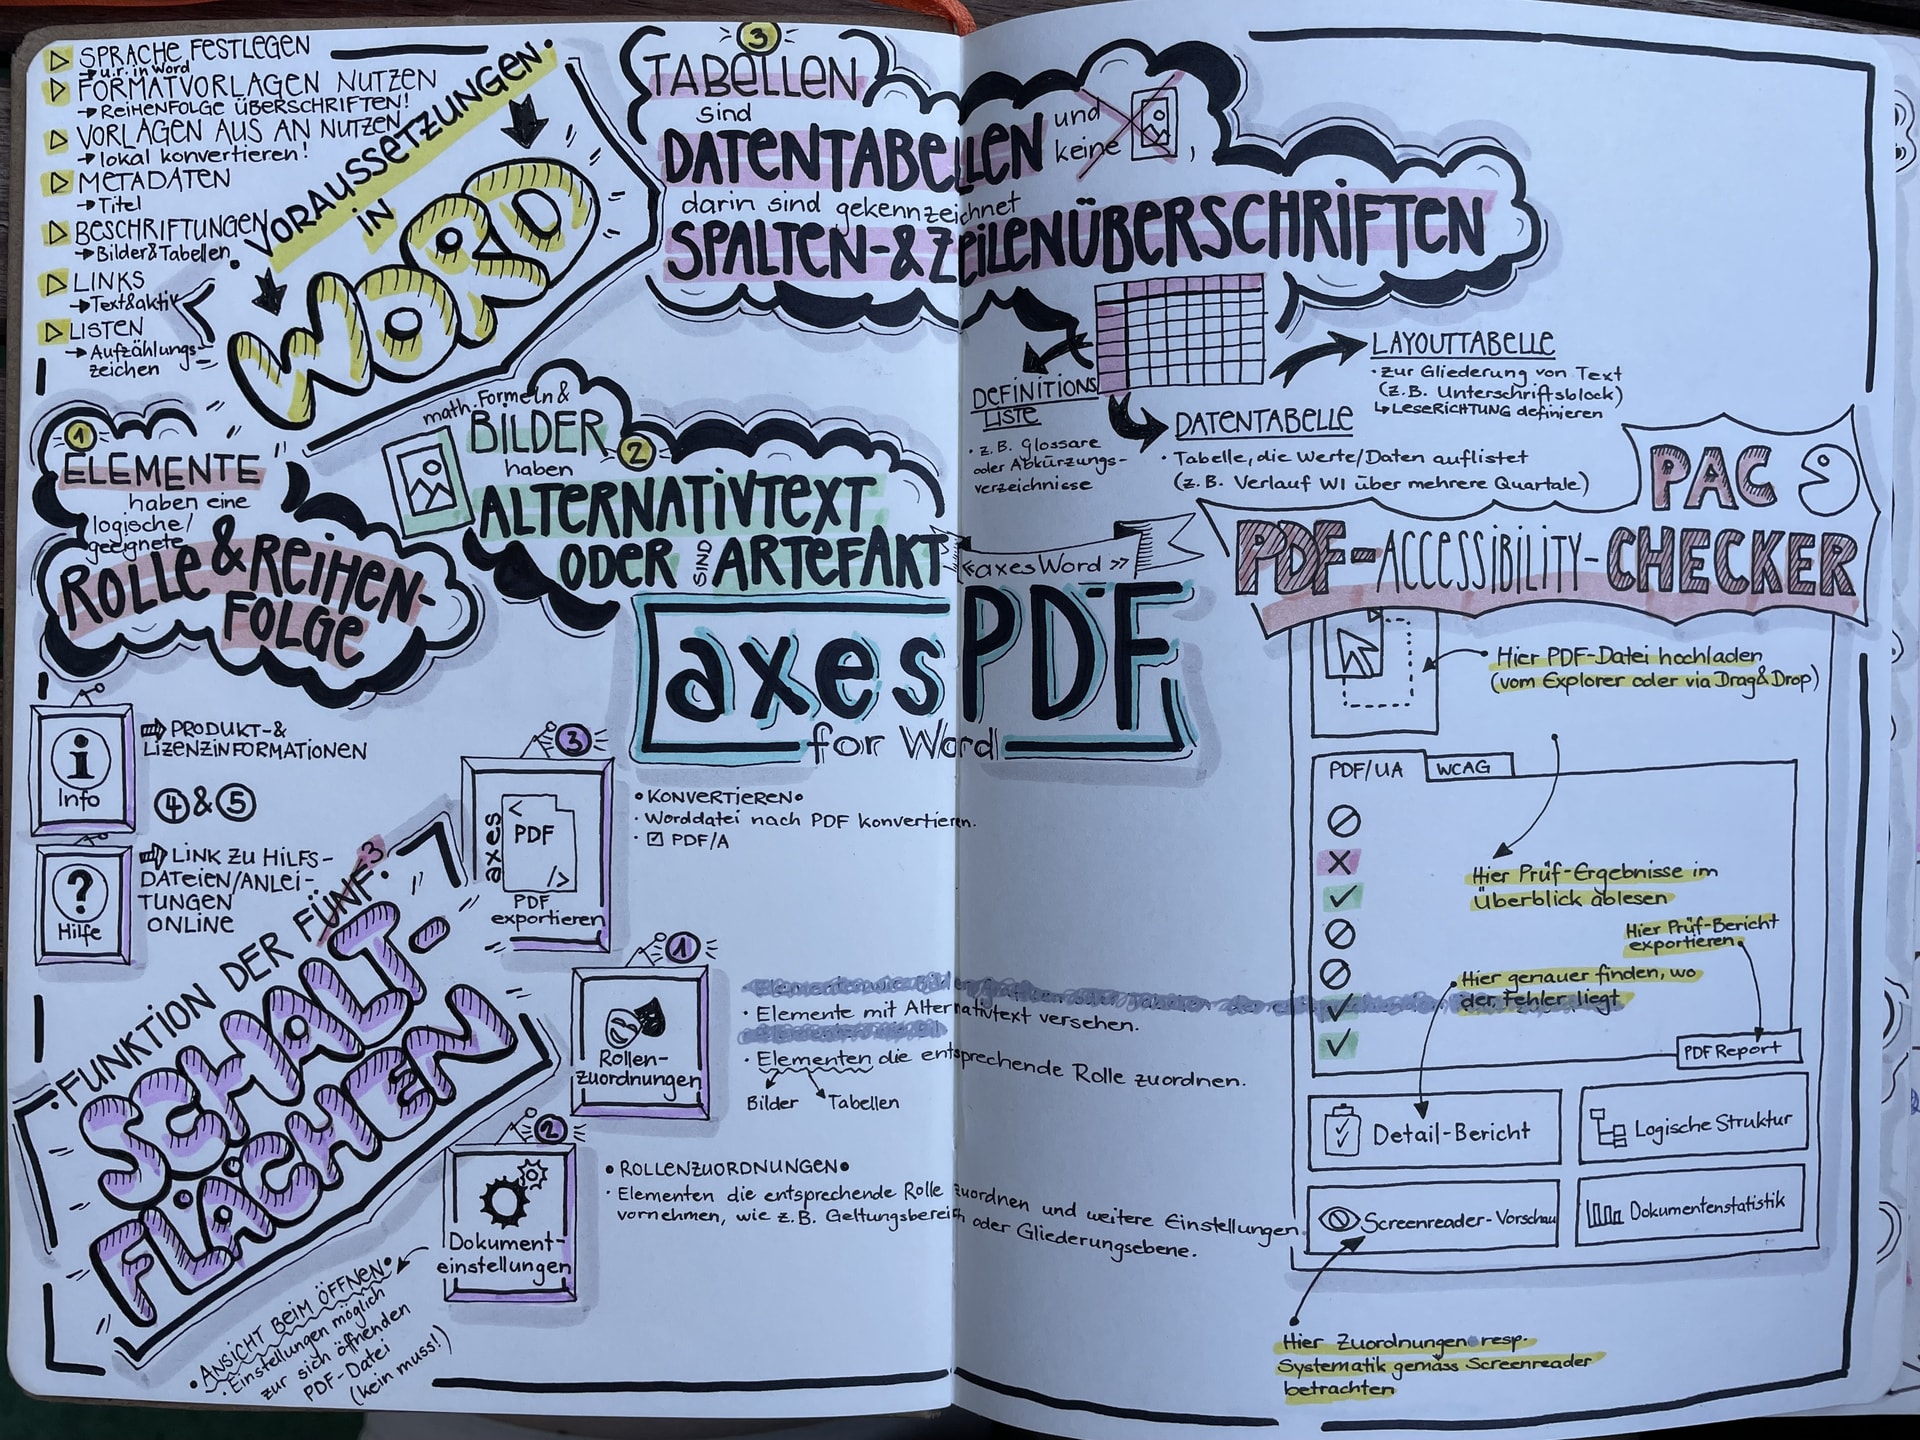 SPRACHE FESTLEGEN
→ u.r. in Word
FORMATVORLAGEN NUTZEN
→ REIHENFOLGE ÜBERSCHRIFTEN!
VORLAGEN AUS AN NUTZEN
→ lokal konvertieren!
METADATEN
→ Titel
BESCHRIFTUNGEN
→ Bilder & Tabellen
LINKS
→ Text & aktiv
LISTEN
→ Aufzählungs-
zeichen
VORAUSSETZUNGEN
IN
WORD
3
TABELLEN
sind
DATENTABELLEN und
keine ,
darin sind gekennzeichnet
SPALTEN- & ZEILENÜBERSCHRIFTEN
DEFINITIONS
LISTE
• z.B. Glossare
oder Abkürzungs-
verzeichnisse
LAYOUTTABELLE
• zur Gliederung von Text
(z.B. Unterschriftsblock)
↳ LESERICHTUNG definieren
DATENTABELLE
• Tabelle, die Werte/Daten auflistet
(z.B. Verlauf WI über mehrere Quartale)
1
ELEMENTE
haben eine
logische/
geeignete
ROLLE & REIHEN-
FOLGE
math. Formeln &
BILDER
2
haben
ALTERNATIVTEXT
ODER SIND ARTEFAKT
« axesWord »
axesPDF
for Word
PAC
PDF-ACCESSIBILITY-CHECKER
Hier PDF-Datei hochladen
(vom Explorer oder via Drag & Drop)
PDF/UA
WCAG
Hier Prüf-Ergebnisse im
Überblick ablesen
Hier Prüf-Bericht
exportieren
Hier genauer finden, wo
der Fehler liegt
PDF Report
Detail-Bericht
Logische Struktur
Screenreader-Vorschau
Dokumentenstatistik
Hier Zuordnungen resp.
Systematik gemäss Screenreader
betrachten
Info
⇒ PRODUKT- &
LIZENZINFORMATIONEN
4 & 5
?
Hilfe
⇒ LINK ZU HILFS-
DATEIEN/ANLEI-
TUNGEN
ONLINE
FUNKTION DER FÜNF 3
SCHALT-
FLÄCHEN
3
axes
<
PDF
/>
PDF
exportieren
• KONVERTIEREN •
• Worddatei nach PDF konvertieren.
• ☑ PDF/A
1
Rollen-
zuordnungen
• Elemente mit Alternativtext versehen.
• Elementen die entsprechende Rolle zuordnen.
Bilder Tabellen
2
Dokument-
einstellungen
• ROLLENZUORDNUNGEN •
• Elementen die entsprechende Rolle zuordnen und weitere Einstellungen
vornehmen, wie z.B. Geltungsbereich oder Gliederungsebene.
• ANSICHT BEIM ÖFFNEN •
• Einstellungen möglich
zur sich öffnenden
PDF-Datei
(kein muss!)